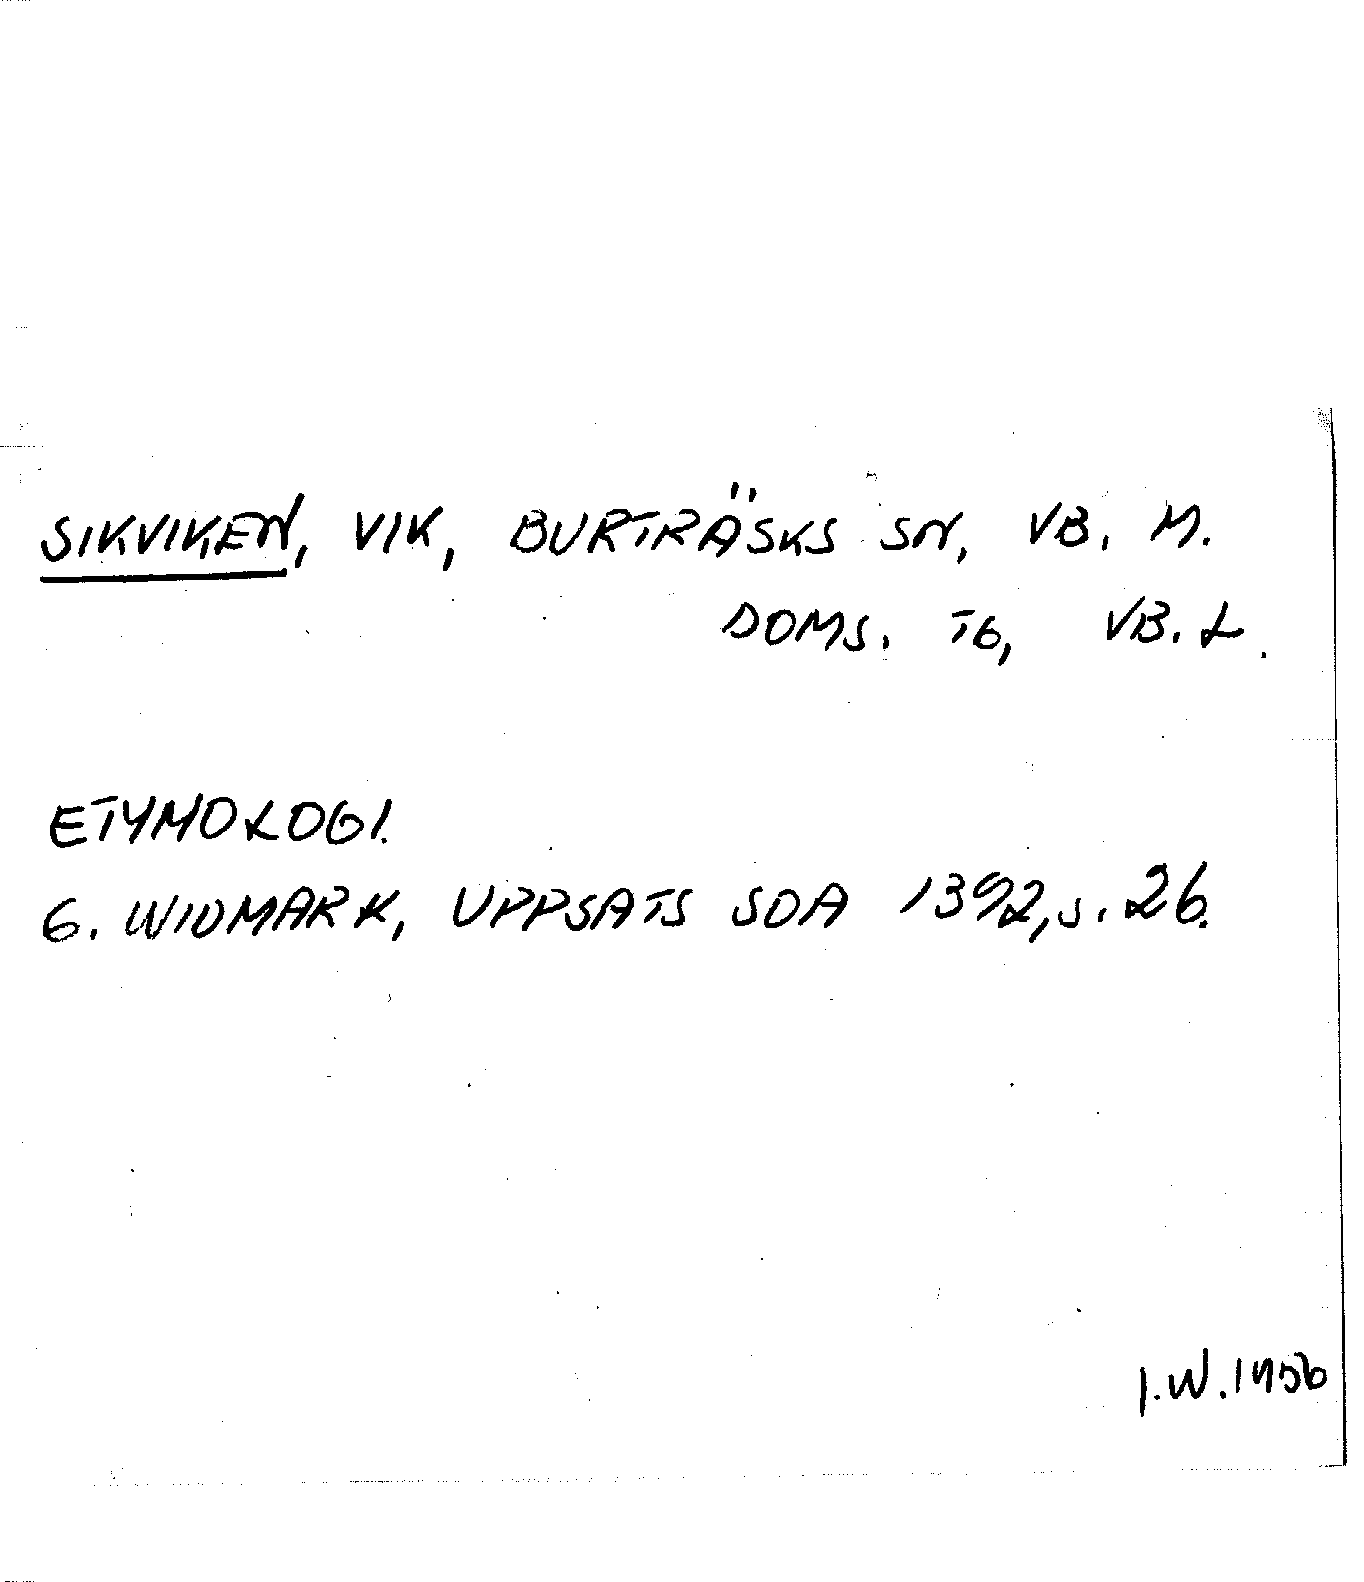 SIKVIKEN, VIK, BURTRÄSKS SN, VB. M.
DOMS. TG, VB. L.
ETYMOLOGI.
G. WIDMARK, UPPSATS SOA 1392, S. 26.
I.W. 1956